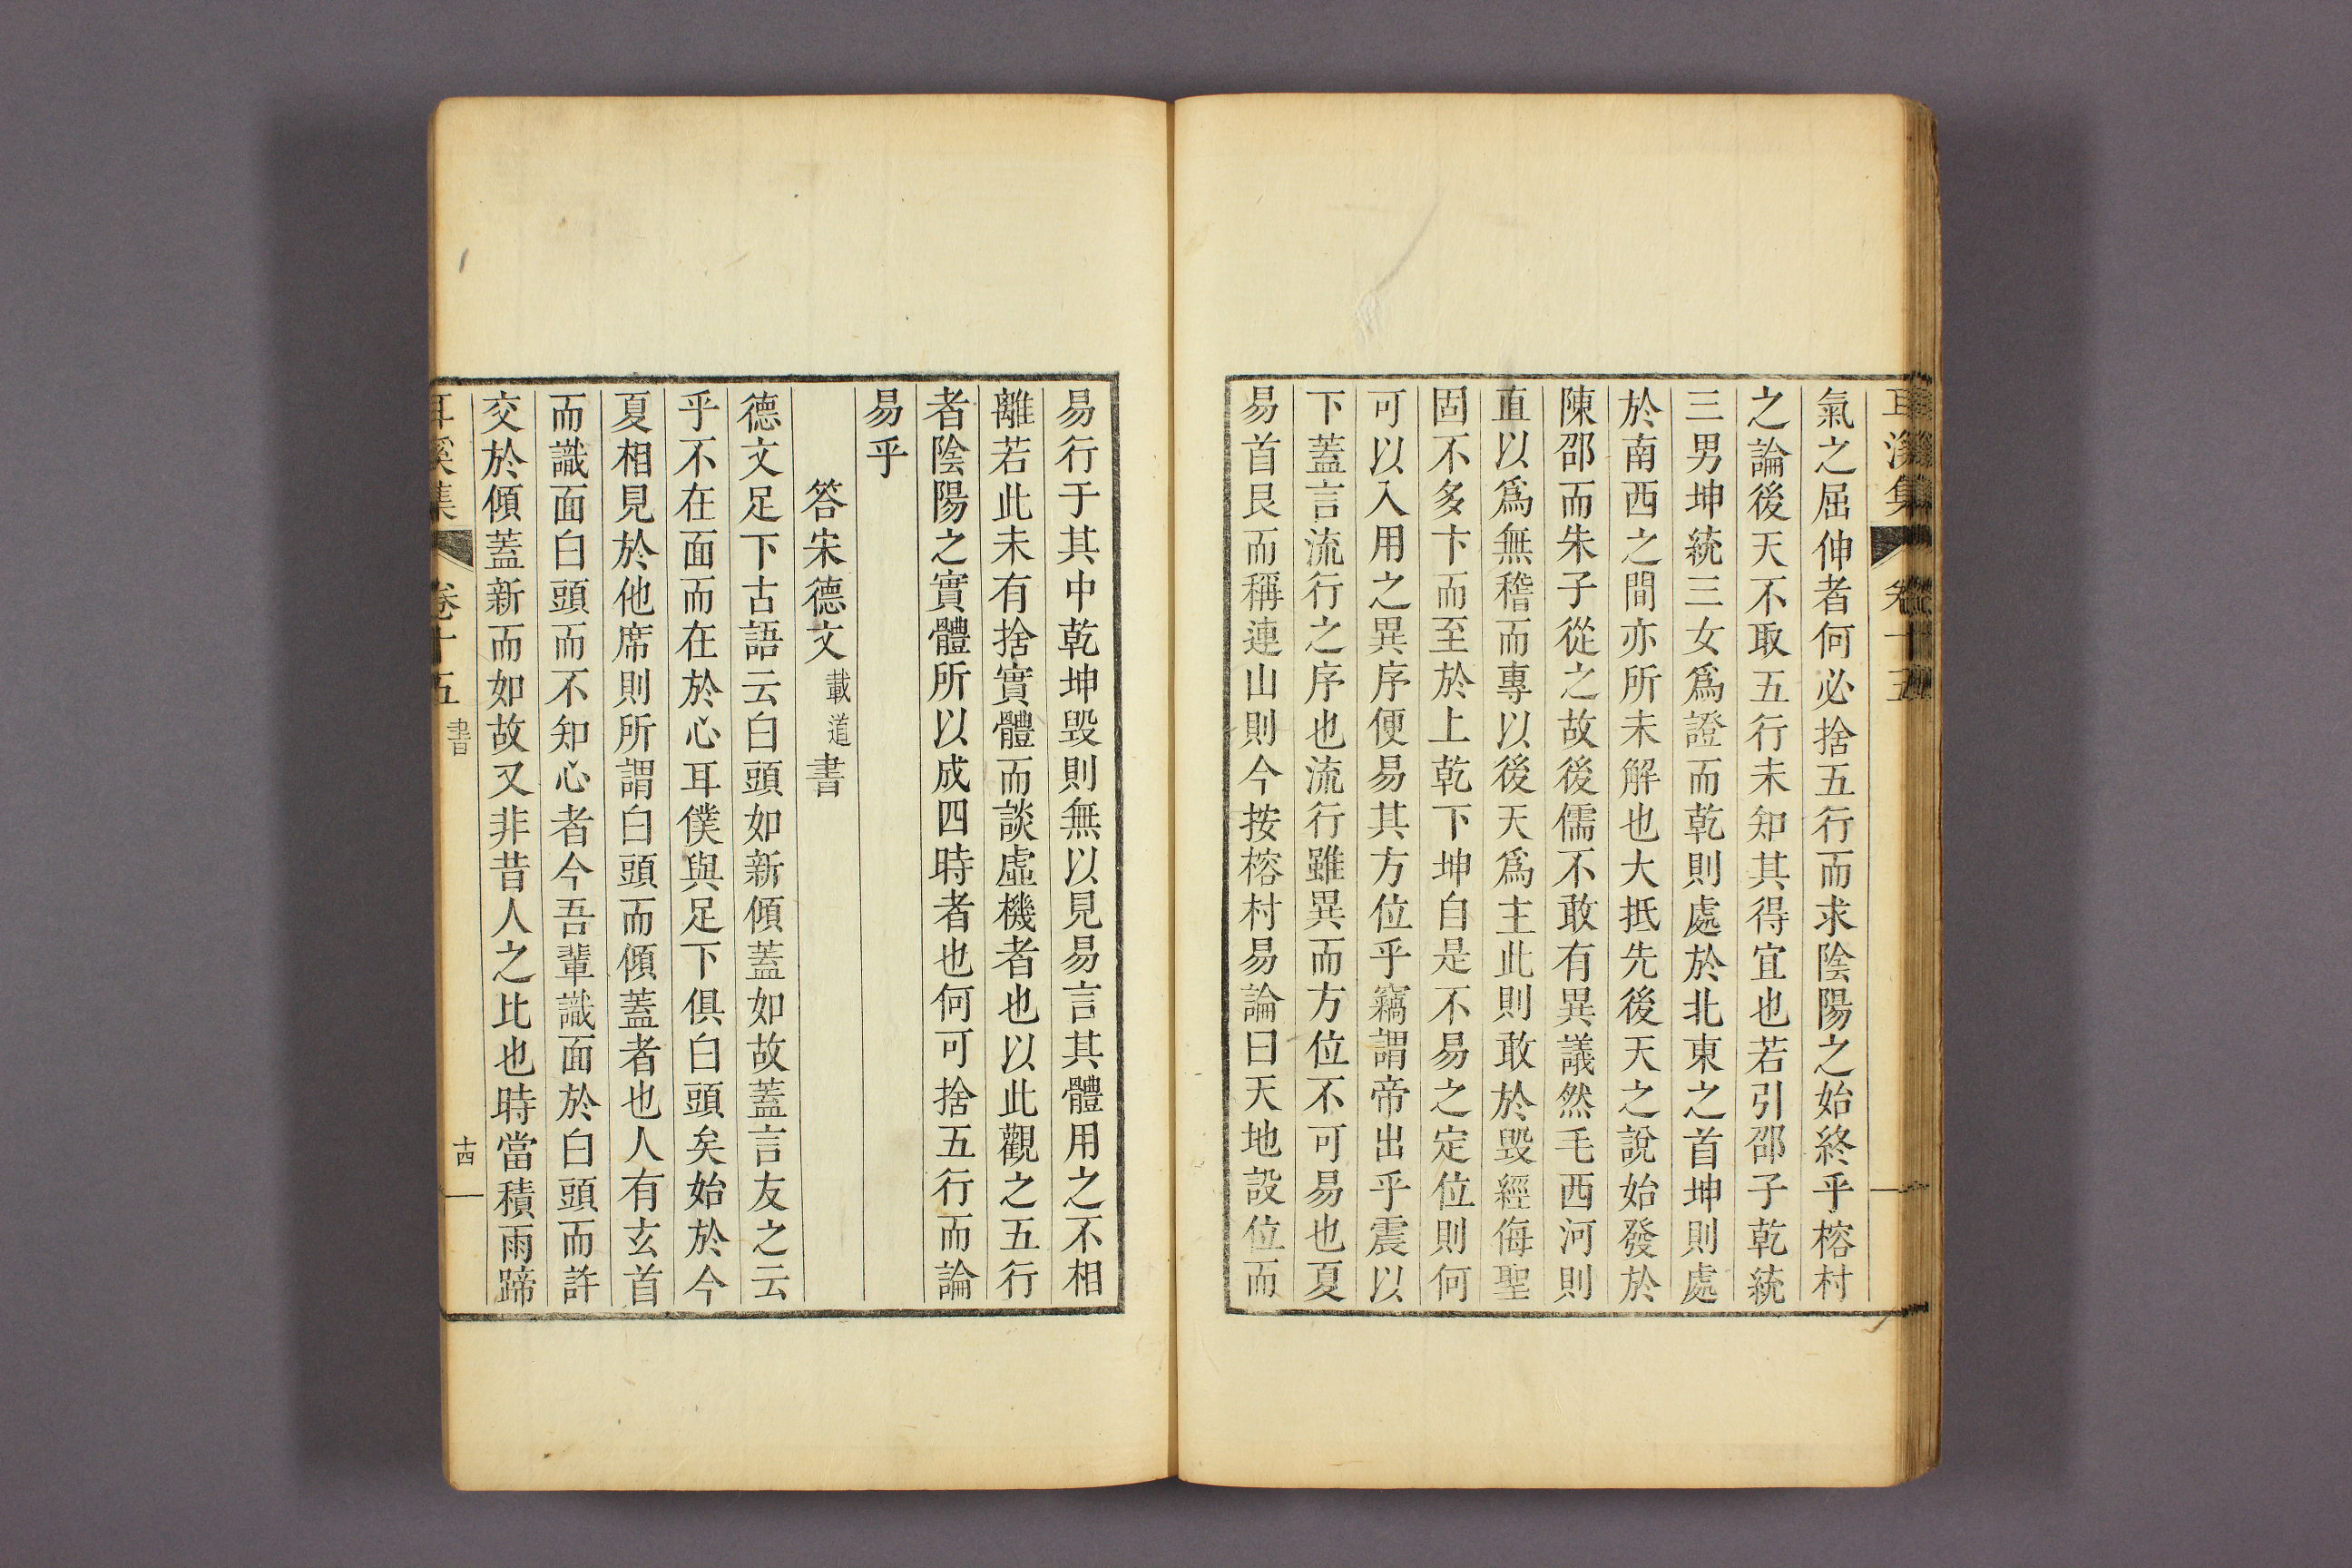 耳溪集 卷十五
氣之屈伸者何必捨五行而求陰陽之始終乎榕村
之論後天不取五行未知其得宜也若引邵子乾統
三男坤統三女爲證而乾則處於北東之首坤則處
於南西之間亦所未解也大抵先後天之說始發於
陳邵而朱子從之故後儒不敢有異議然毛西河則
直以爲無稽而專以後天爲主此則敢於毀經侮聖
固不多卞而至於上乾下坤自是不易之定位則何
可以入用之異序便易其方位乎竊謂帝出乎震以
下蓋言流行之序也流行雖異而方位不可易也夏
易首艮而稱連山則今按榕村易論曰天地設位而
易行于其中乾坤毀則無以見易言其體用之不相
離若此未有捨實體而談虛機者也以此觀之五行
者陰陽之實體所以成四時者也何可捨五行而論
易乎
答宋德文載道書
德文足下古語云白頭如新傾蓋如故蓋言友之云
乎不在面而在於心耳僕與足下俱白頭矣始於今
夏相見於他席則所謂白頭而傾蓋者也人有玄首
而識面白頭而不知心者今吾輩識面於白頭而許
交於傾蓋新而如故又非昔人之比也時當積雨蹄
耳溪集 卷十五 書 十四